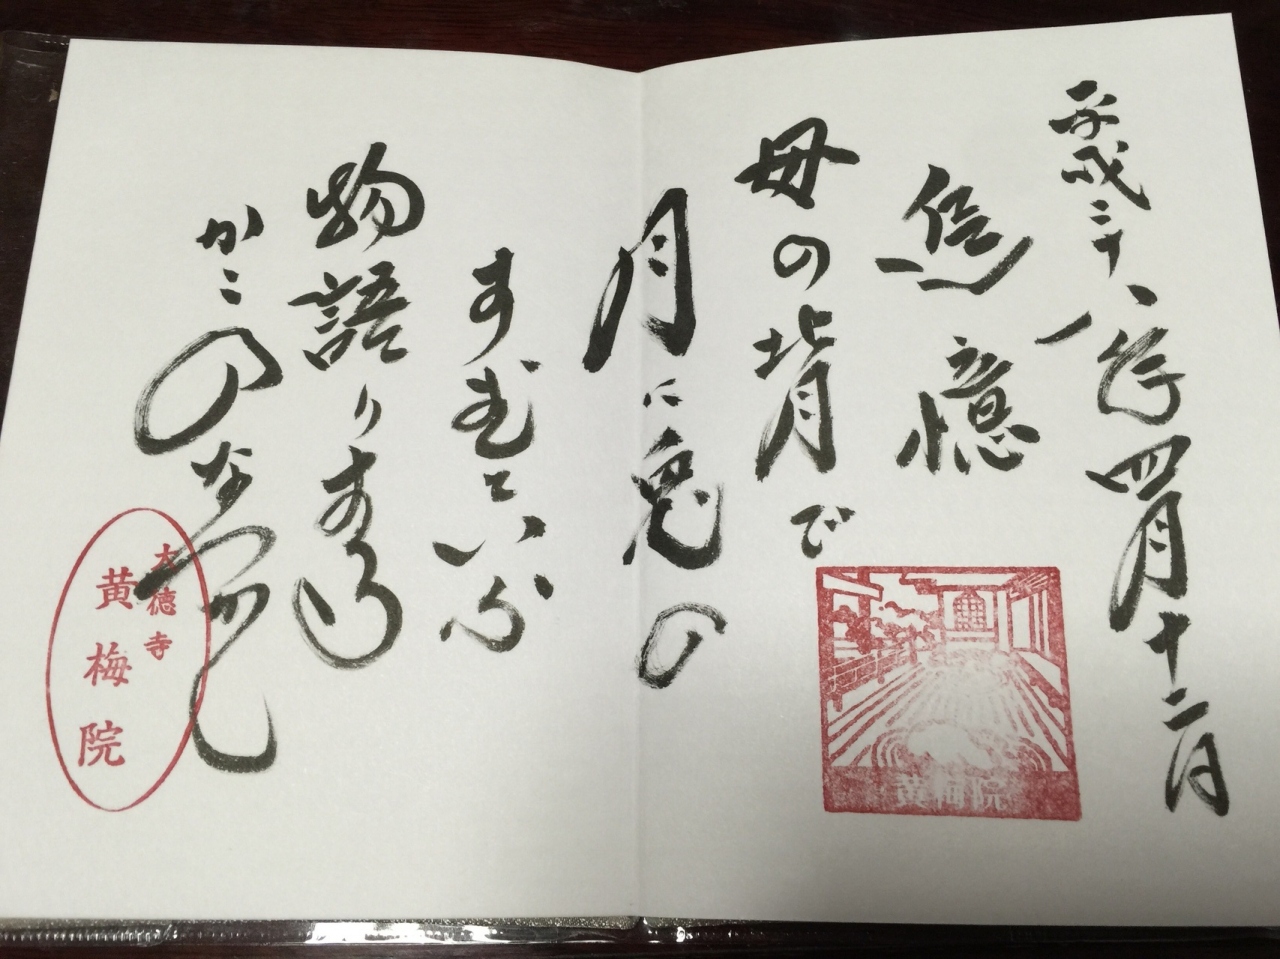 平成二十八年四月十二日
追憶
母の背で
月に兎の
すむといふ
物語りする
かこのなつかし
黄梅院
大徳寺
黄梅院